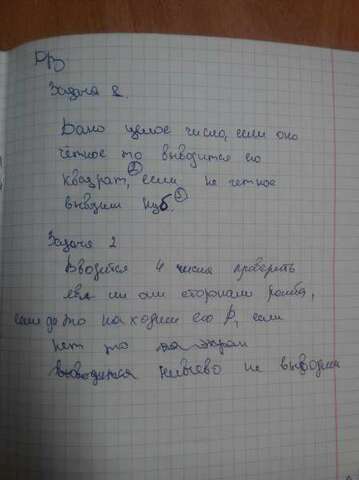 Д/з
Задача 1.
Дано целое число, если оно
четное то выводится его
квадрат,② если не четное
выводим куб.③
Задача 2
Вводится 4 числа проверить
явл ли они сторонами ромба,
если да то находим его P, если
нет то на экран
ничего не выводим